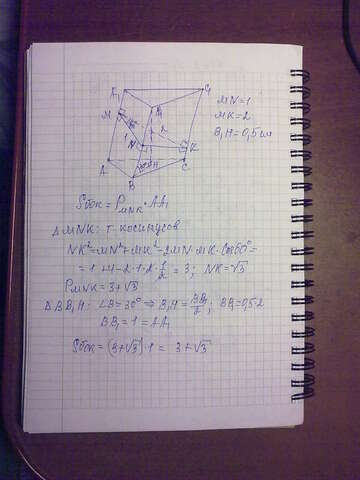 A₁
C₁
B₁
M
N
K
A
C
B
1
2
H
MN=1
MK=2
B₁H=0,5
Sбок = P_MNK · AA₁
ΔMNK: т. косинусов
NK²=MN²+MK²-2MN·MK·Cos60°=
= 1+4-2·1·2·½ = 3; NK=√3
P_MNK = 3+√3
ΔBB₁H: ∠B=30° ⇒ B₁H = BB₁/2; BB₁=0,5·2
BB₁ = 1 = AA₁
Sбок = (3+√3)·1 = 3+√3